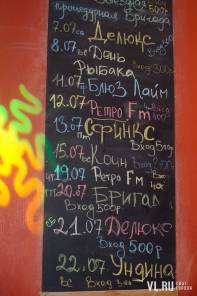 процедурная Бригада
7.07 Делюкс
Вход
8.07 вс День
Рыбака
11.07 Блюз Лайм
12.07 Ретро Fm
13.07 Сфинкс
Вход 500р
15.07 вс Коин
19.07 Ретро Fm
20.07 Бригада
Вход 500р
21.07 Делюкс
Вход 500р
22.07 Ундина
вс Вход
VL.RU